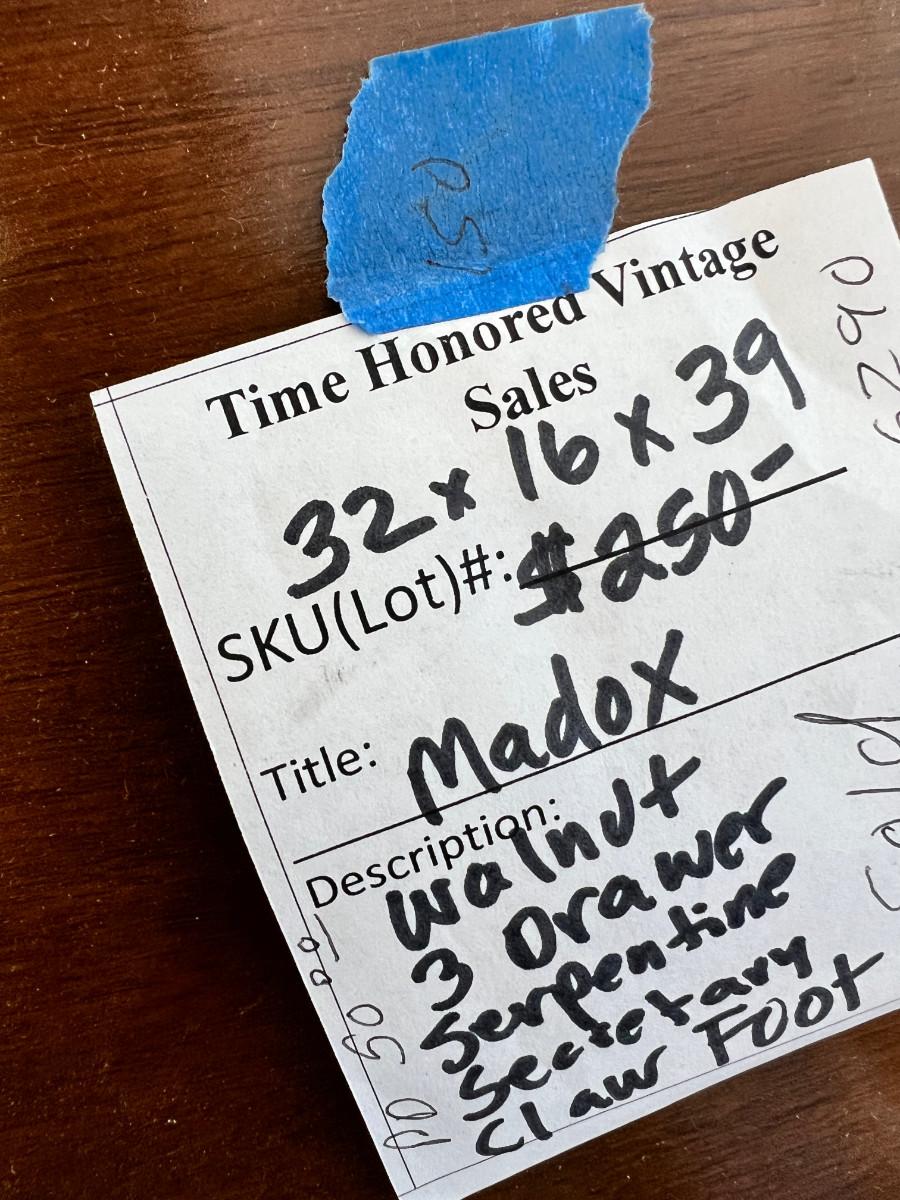 150
Time Honored Vintage
Sales
32 x 16 x 39
SKU(Lot)#: $250-
Title: Madox
Description:
Walnut
3 Drawer
Serpentine
Secretary
Claw Foot
6290
Sold